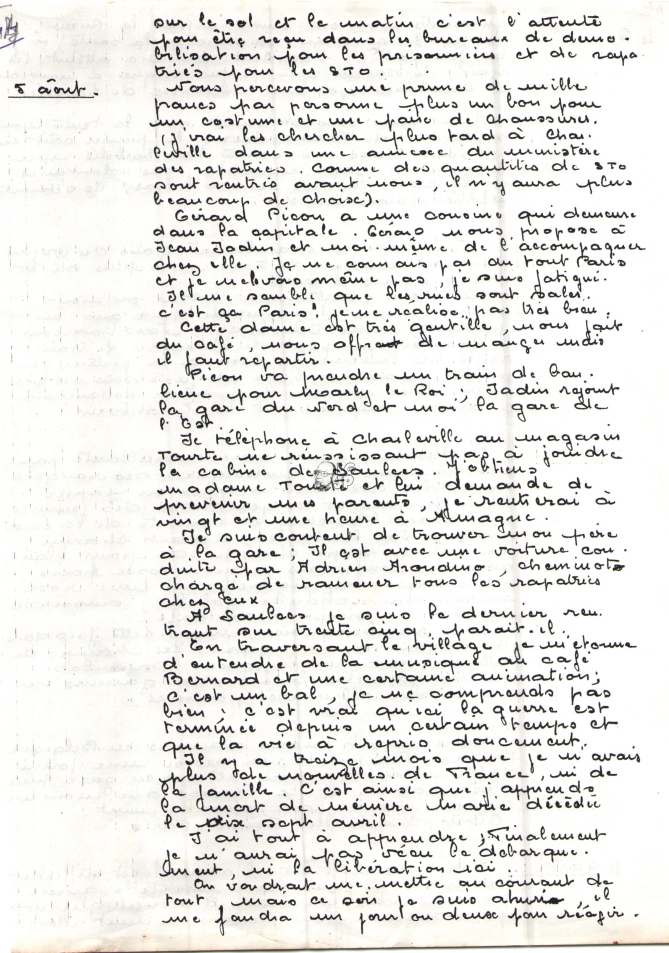 sur le sol et le matin c'est l'attente
pour être reçu dans les bureaux de démo-
bilisation pour les prisonniers et de rapa-
triés pour les STO.
5 août.
Nous percevons une prime de mille
francs par personne plus un bon pour
un costume et une paire de chaussures.
(J'irai les chercher plus tard à Char-
leville dans une annexe du ministère
des rapatriés. Comme des quantités de STO
sont rentrés avant nous, il n'y aura plus
beaucoup de choses).
Gérard Picon a une cousine qui demeure
dans la capitale. Gérard nous propose à
Jean Jadin et moi-même de l'accompagner
chez elle. Je ne connais pas du tout Paris
et je me lèverais même pas, je suis fatigué.
Il me semble que les rues sont sales.
C'est ça Paris! je ne réalise pas très bien.
Cette dame est très gentille, nous fait
du café, nous offre de manger mais
il faut repartir.
Picon va prendre un train de ban-
lieue pour Marly le Roi, Jadin rejoint
la gare du Nord et moi la gare de
l'Est.
Je téléphone à Charleville au magasin
Tourte ne réussissant pas à joindre
la cabine de Saulces. J'obtiens
madame Tourte et lui demande de
prévenir mes parents, je rentrerai à
vingt et une heure à Amagne.
Je suis content de trouver mon père
à la gare; Il est avec une voiture con-
duite par Adrien cheminot
chargé de ramener tous les rapatriés
chez eux.
A Saulces je suis le dernier ren-
trant sur trente cinq, parait-il.
En traversant le village je m'étonne
d'entendre de la musique au café
Bernard et une certaine animation;
C'est un bal, je ne comprends pas
bien, c'est vrai qu'ici la guerre est
terminée depuis un certain temps et
que la vie à repris doucement.
Il y a treize mois que je n'avais
plus de nouvelles de France, ni de
la famille. C'est ainsi que j'apprends
la mort de mémère Marie décédée
le dix sept avril.
J'ai tout à apprendre; Finalement
je n'aurai pas vécu le débarque-
ment ni la libération ici.
On voudrait me mettre au courant de
tout, mais ce soir je suis ahuri, il
me faudra un jour ou deux pour réagir.